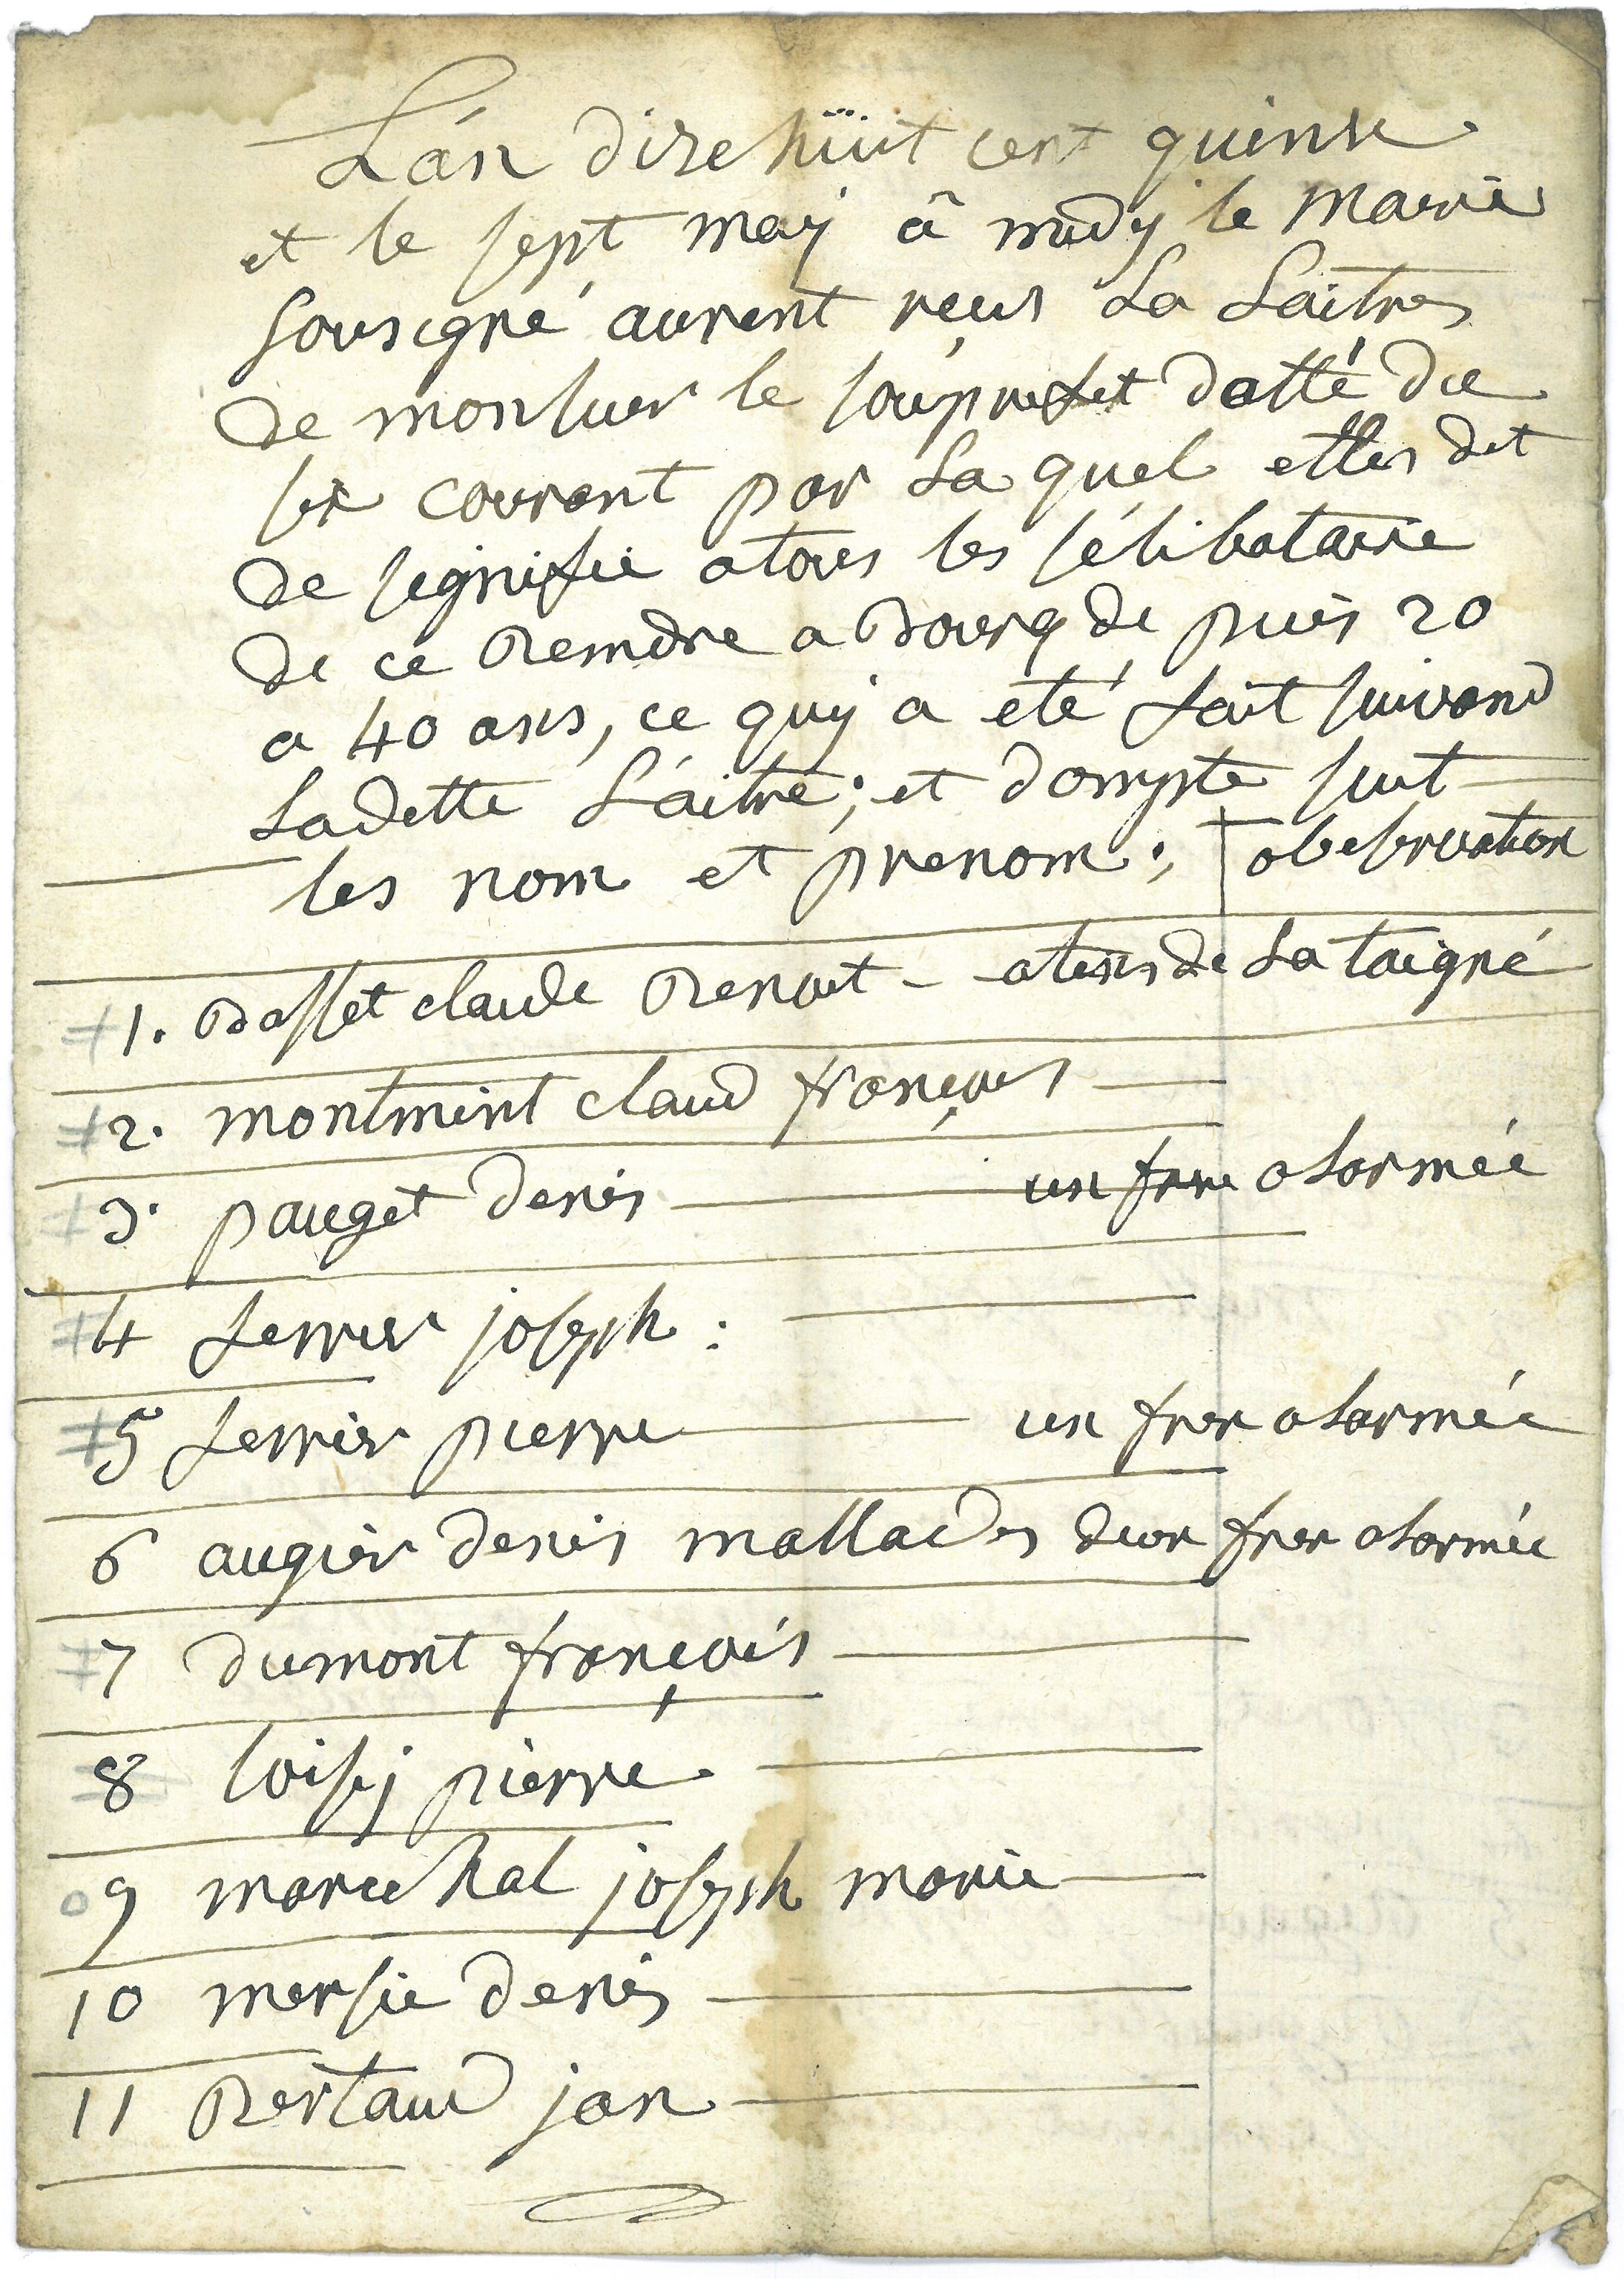 L'an dize huit cent quinse
et le sept may à midy le Maire
sousigné aurent reçus La Laitres
de monsier le souprefet datté du
six courent par La quel ettes dit
de signifié atous les sélibataire
de ce Rendre a Bourg de puis 20
a 40 ans, ce quy a eté fait suivand
Ladette Laitre; et dompte suit
les nom et prenom; observation
1. Basset claude Renout - atens de La taigne
2. montmint claud françois
3. pauget denis un frere a Larmée
4 ferrier joseph:
5 ferrier pierre un frer a Larmée
6 augier denis mallades dun frer a Larmée
7 dumont françois
8 loisy pierre
9 marechal joseph marie
10 mersie denis
11 Pertaud jan